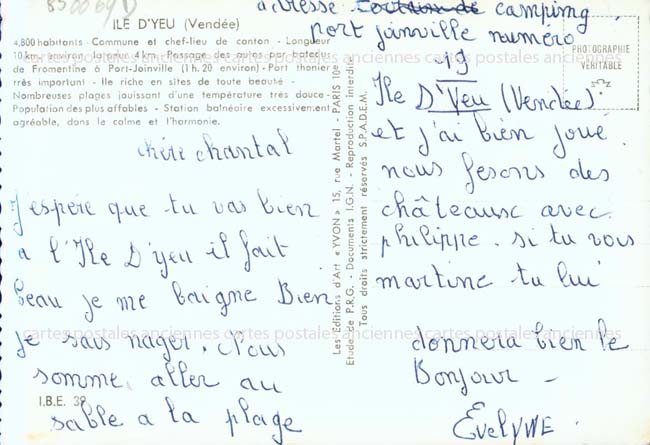 850069D
ILE D'YEU (Vendée)
4.800 habitants - Commune et chef-lieu de canton - Longueur
10 km. environ, largeur 4 km. - Passage des autos par bateau
de Fromentine à Port-Joinville (1 h. 20 environ) - Port thonier
très important - Ile riche en sites de toute beauté -
Nombreuses plages jouissant d'une température très douce -
Population des plus affables - Station balnéaire excessivement
agréable, dans le calme et l'harmonie.
chère chantal
J'espère que tu vas bien
a l'Ile D'yeu il fait
beau je me baigne Bien
je sais nager. Nous
somme aller au
sable a la plage
I.B.E. 39
Les Editions d'Art « YVON » 15, rue Martel - PARIS 10e
Etude de P.R.G. - Documents I.G.N. - Reproduction interdite
Tous droits strictement réservés S.P.A.D.E.M.
adresse camping
port joinville numéro
19
PHOTOGRAPHIE
VÉRITABLE
Ile D'Yeu (Vendée)
et j'ai bien joué.
nous fesons des
châteause avec
philippe. si tu vois
martine tu lui
donnera bien le
Bonjour -
EvelyNE
cartes postales anciennes cartes postales anciennes cartes postales anciennes
cartes postales anciennes cartes postales anciennes cartes postales anciennes